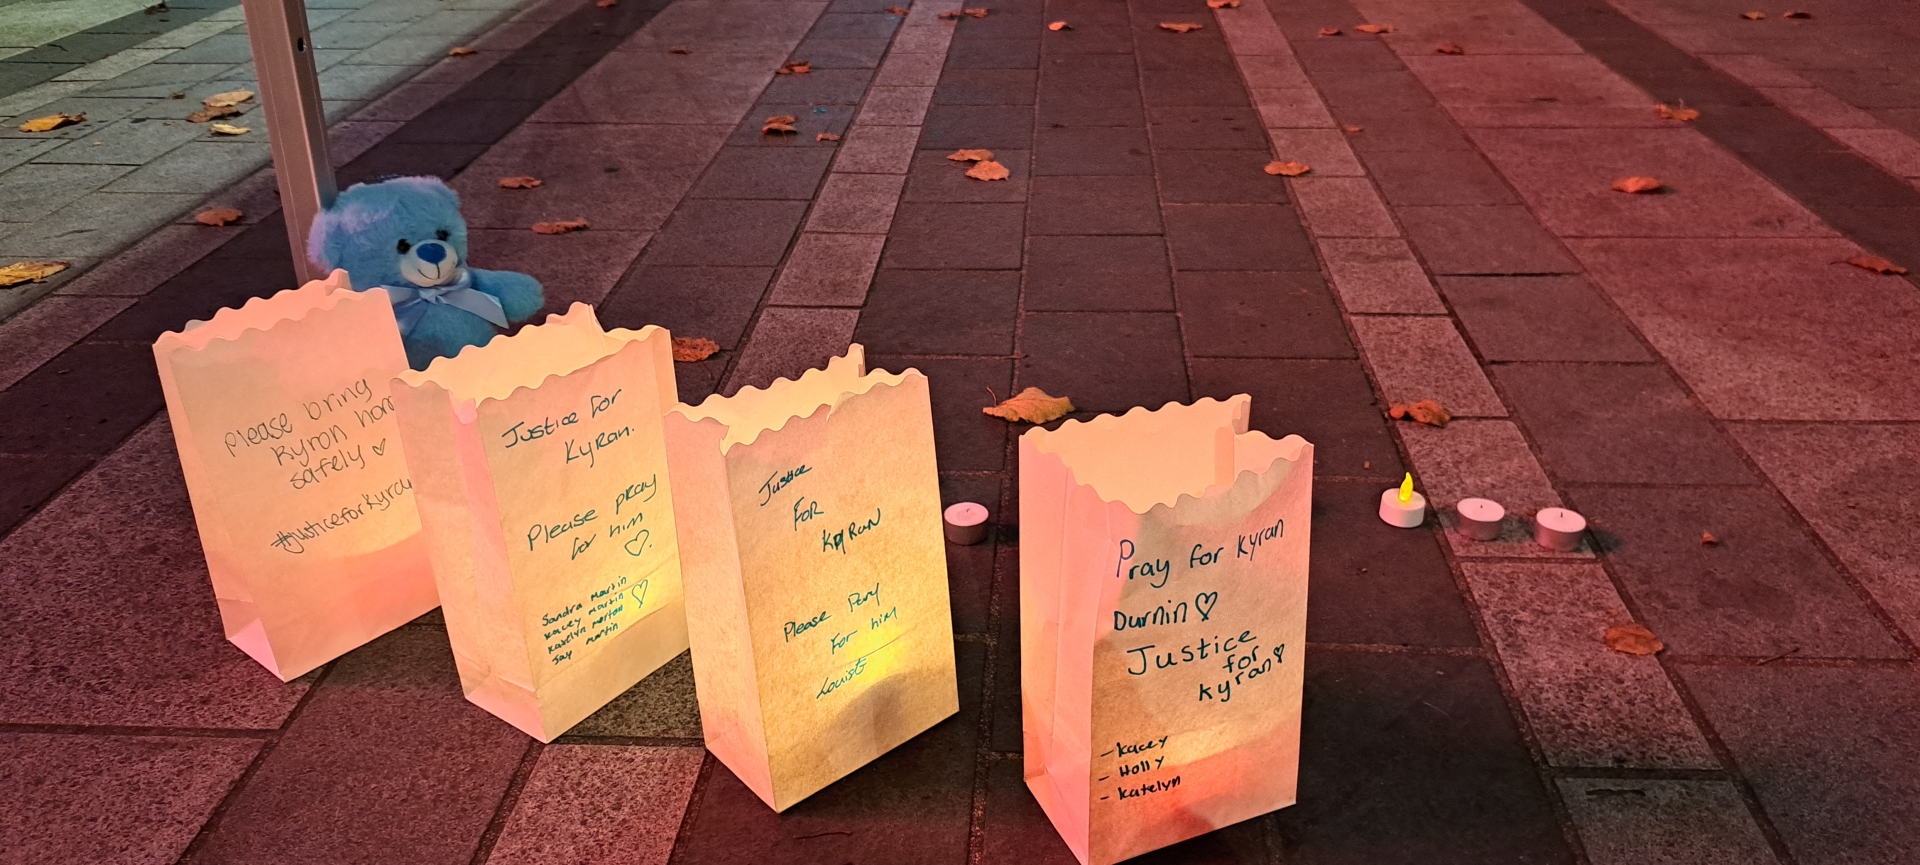 Please bring
Kyron hom
safely ♡
#justiceforkyra
Justice for
Kyran.
Please pray
for him
♡.
Sandra Martin
Kacey Martin ♡
Katelyn Martin
Jay Martin
Justice
FOR
KyRaN
Please Pery
For him
Louise
Pray for Kyran
Durnin ♡
Justice
for
kyran ♡
- Kacey
- Holly
- Katelyn